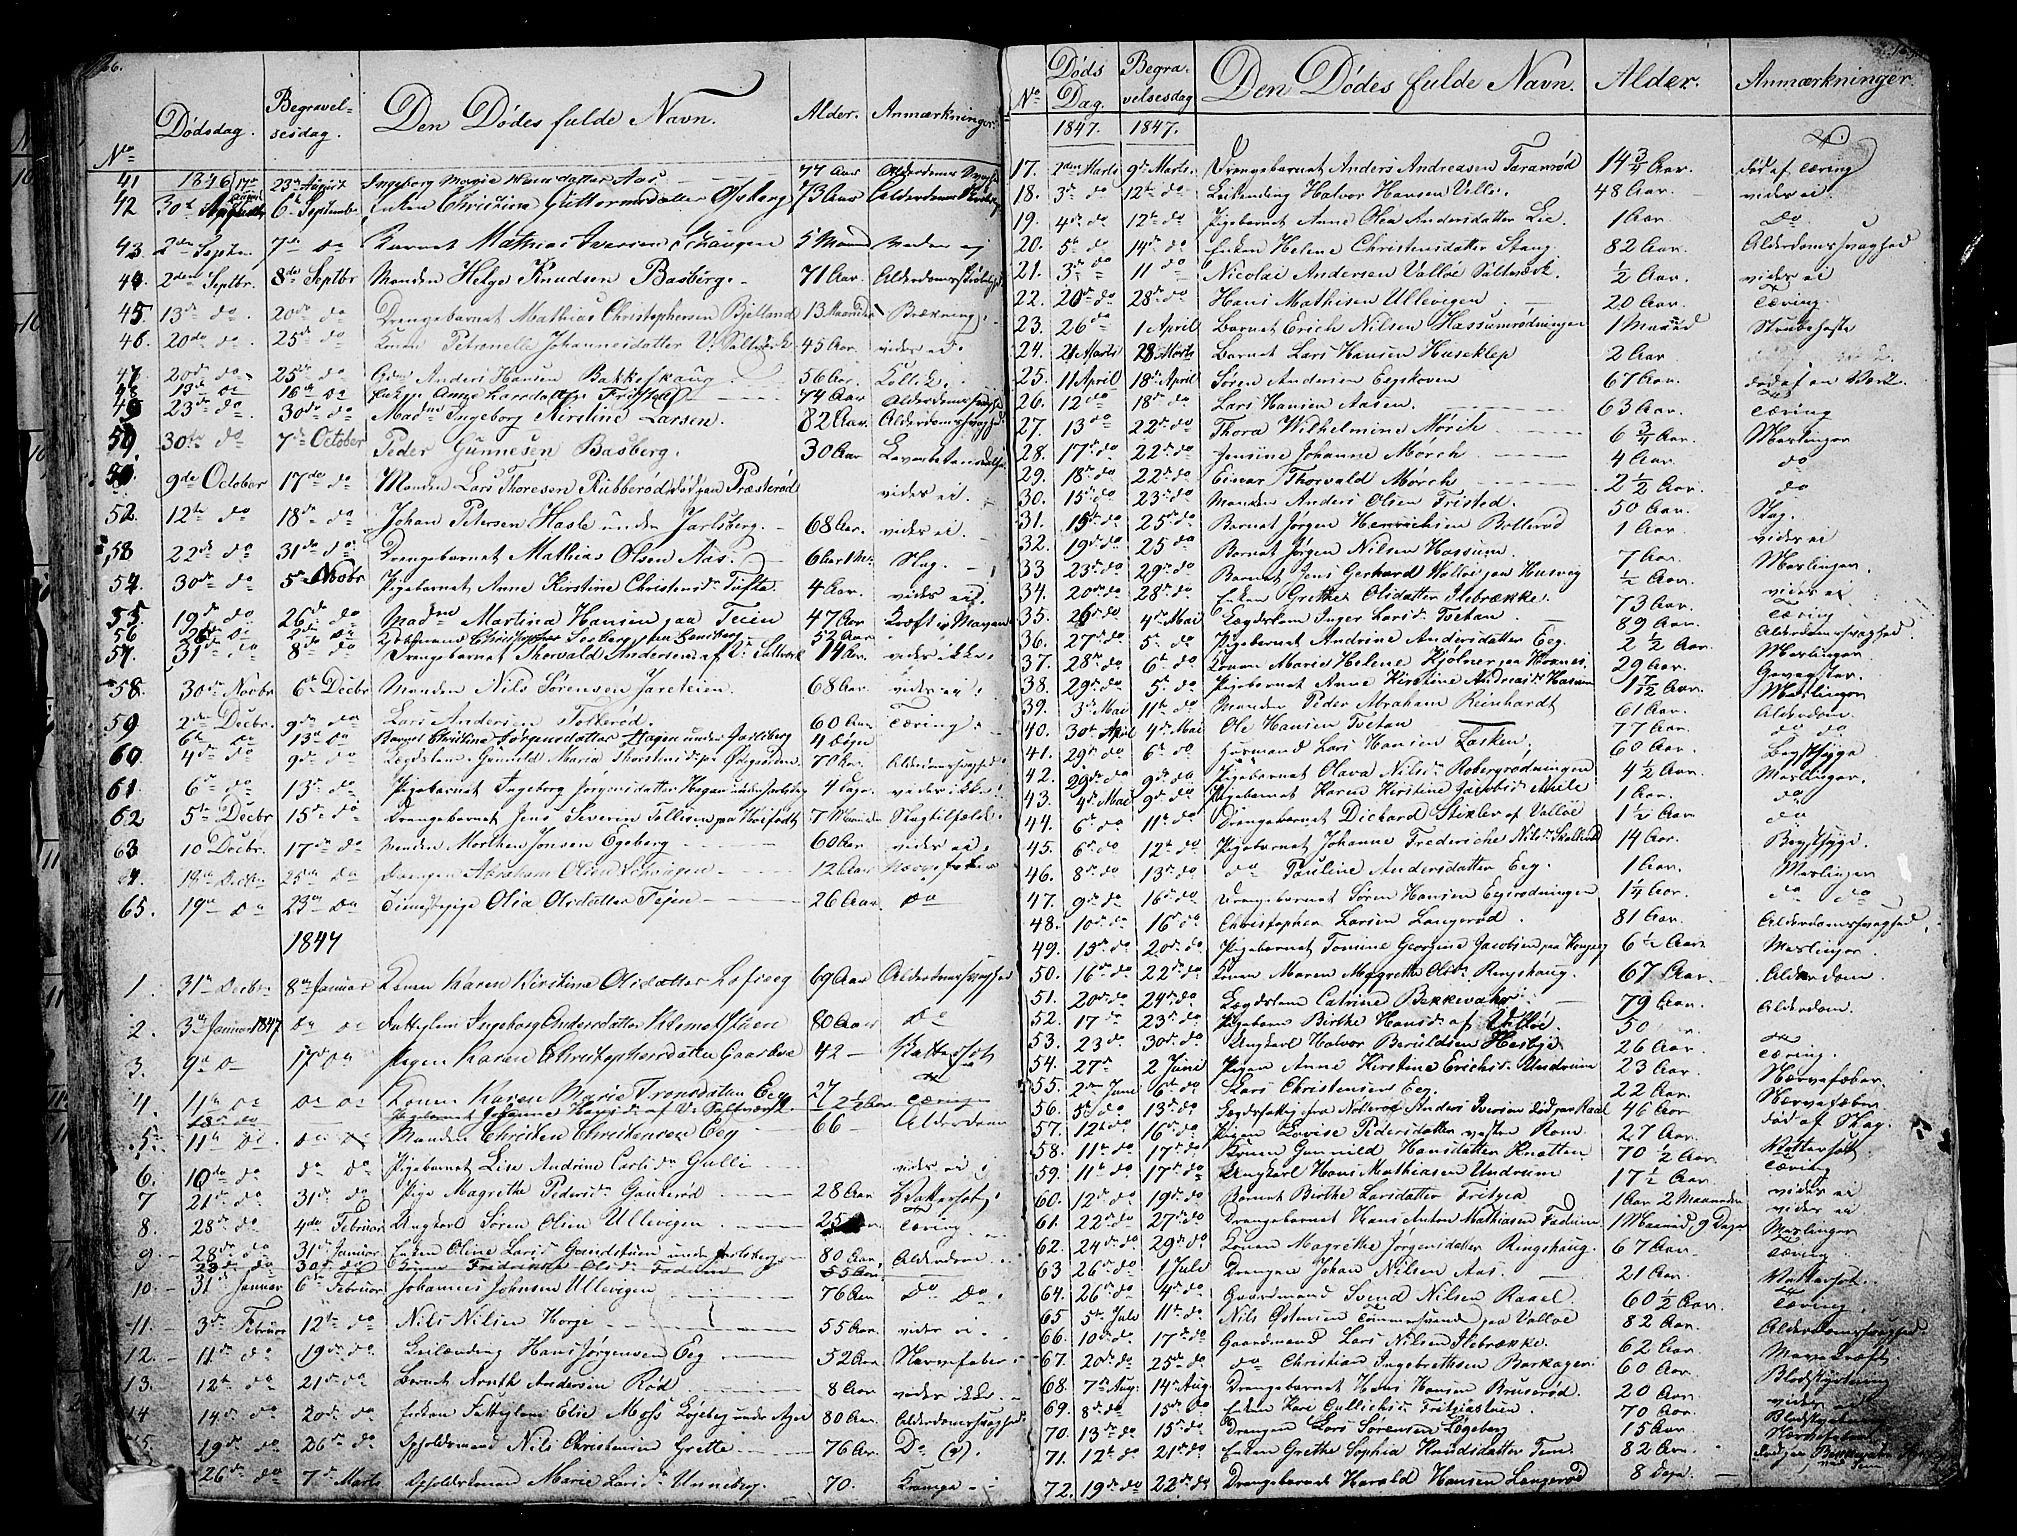 66.
No
Dødsdag.
Begravelsesdag.
Den Dødes fulde Navn.
Alder.
Anmærkninger
41 1846 17de August 23de August Ingeborg Marie Aas 77 Aar
42 30te August 6te Septembr Enken Christine Guttormsdatter 73 Aar Alderdoms
43. 2den Septbr. 7de do Barnet Mathias Iversen Schaugen 5 Maand
44. 2den Septbr. 8de Septbr Manden Helge Knudsen Basberg 71 Aar. Alderdoms
45. 13de do. 20de do Drengebarnet Mathias Christophersen Bjelland 13 Brækning
46. 20de do. 25de do Konen Petronelle Johannesdatter V. Saltværk 45 Aar. vides ei
47. 20de do 25de do Anders Hansen Bakkeskaug 56 Aar. Kollik.
48 13de do 16de do Anne Larsdatter 74 Aar Alderdomssvaghed
49 23de do 30de do Madm Ingeborg Kirstine Larsen. 82 Aar. Alderdomssvaghed
50. 30te do 7de October Peder Gunnesen Basberg. 30 Aar
51. 9de October 17de do Manden Lars Thoresen Rubberød død paa Præsterød vides ei
52. 12te do 18de do Johan Petersen Hasle under Jarlsberg. 68 Aar. vides ei
53 22de do 31de do Drengebarnet Mathias Olsen Aas. 6 Aar Slag.
54. 30te do 5te Novbr Pigebarnet Anne Kirstine Christensd. Tufte 4 Aar. vides ei
55. 19de do 26de do Madm Martina Hansen paa Teien 47 Aar Kræft i Maven
56 26de do 2de do Christopher 52 Aar
57. 31de do 8de do Drengebarnet Thorvald Andersen af V. Saltværk 14 Aar. vides ikke.
58. 30te Novbr 6te Decbr Manden Nils Sørensen Jareteien. 68 Aar. vides ei
59 2den Decbr. 9de do Lars Andersen Tolkerød. 60 Aar Tæring.
6te do 13de do Barnet Christine Jørgensdatter Hagen under Jarlsberg 4 Dage
60. 4de do 9de do Lægdslem Gunnild Maria Thorstensd. 70 Aar. Alderdomssvaghed
61 6te do 13de do Pigebarnet Ingeborg Jørgensdatter Hagen under Jarlsberg 4 Dage. vides ikke.
62 5te Decbr 15de do Drengebarnet Jens Severin Tollefsen 7 Slagtilfælde
63 10 Decbr. 17de do Manden Morthen Jonsen Egeberg 60 Aar. vides ei
64. 25de do Drengen Abraham Olsen 12 Aar Nervefeber
65. 19de do 23de do Tjenestepige Olia Olsdatter Teien 26 Aar. do
1847
1. 31te Decbr 8de Januar Konen Karen Kirstine Olsdatter 69 Aar Alderdomssvaghed
2. 3de Januar 1847 do do Fattiglem Ingeborg Andersdatter 80 Aar do
3. 9de do 17de do Pigen Karen Christophersdatter 42 Vattersot
4. 11te do do do Konen Karen Marie Tronsdatter Eeg 27 Tæring
18de do Pigebarnet Johanne Hansd. af V. Saltværk 2½ Aar
5. 11te do. do do Manden Christen Christensen Eeg 66 Alderdom
6. 10de do do do Pigebarnet Lise Andrine Carlsd. Gulli vides ei
7 21de do 31de do Pige Magrethe Pedersd. Gauterød 28 Aar Vattersot
8. 28de do 4de Februar Ungkarl Søren Olsen Ullevigen 25 Aar. Tæring
9. 28de do 31te Januar Enken Oline Larsd. under Jarlsberg 80 Aar Alderdom
23de do 30de do Konen Fredrikke Olsd. Fadum 55 Aar
10. 31te Januar 6te Februar Johannes Johnsen Ullevigen 76 Aar do do
11. 3de Februar 12te do Nils Nilsen Horge 55 Aar. vides ei
12. 11te do 19de do Leilænding Hans Jørgensen Eeg 52 Aar Nervefeber
13. 12te do 21de do Barnet Andersen Rød 8 Aar vides ikke.
14 14de do 20de do Enken Fattiglem Elie Moss 80 Aar. Alderdomssvaghed
15. 19de do 26de do Opholdsmand Nils Christensen Grette 76 Aar. Do (v).
26de do 7de Marts Opholdskonen Marie Larsd. Unneberg. 70. Krampe
No
Døds Dag.
Begravelsesdag
Den Dødes fulde Navn.
Alder.
Anmærkninger.
1847. 1847.
17. 2den Marts 9de Marts Drengebarnet Anders Andreasen Faranrød 14¾ Aar. død af Tæring
18. 3de do 12te do Leilænding Halvor Hansen Velle. 48 Aar. vides ei
19. 4de do 12te do Pigebarnet Anne Olea Andersdatter Lie 1 Aar. do
20. 5te do 14de do Enken Helene Christensdatter Stang 82 Aar. Alderdomssvaghed
21. 3de do 11 do Nicolai Andersen Valløe Saltværk ½ Aar. vides ei
22. 20de do 28de do Hans Mathisen Ullevigen 20 Aar. Tæring.
23. 26de do 1 April Barnet Erich Nilsen Hassumrødningen 1 Maaned Strubehoste
24. 21 Marts 28 Marts Barnet Lars Hansen Huseklep 2 Aar
25. 11 April 18de April Søren Andersen Eegskoven 67 Aar. død af en Vært.
26. 12de do 18de do Lars Hansen Aasen. 63 Aar. Tæring
27. 13de do 22de do Thora Wilhelmine Mørch 6¾ Aar. Mæslinger
28. 17de do 22de do Jensine Johanne Mørch 4 Aar. do
29. 18de do 22de do Einar Thorvald Mørch 2½ Aar. do
30. 15de do 23de do Manden Anders Olsen Tristed. 50 Aar Slag.
31. 15te do 25de do Barnet Jørgen Henrichsen Bollerød 1 Aar. vides ei
32. 19de do 25 do Barnet Jørgen Nilsen Hassum. 7 Aar. Mæslinger
33 23de do 29de do Barnet Jens Gerhard Valløe paa Husvig ½ Aar. vides ei
34. 20de do 28de do Enken Grethe Olsdatter Ilebrække. 73 Aar. Tæring
35. 26de do 4de Mai Lægdslem Inger Larsd. Tvetan. 89 Aar. Alderdomssvaghed.
36. 27de do 5te do Pigebarnet Andrine Andersdatter Eeg. 2½ Aar. Mæslinger
37. 28de do 6te do Konen Marie Helene Kjølner paa 29 Aar
38. 29de do 5te do Pigebarnet Anne Kirstine Andreasd. Hassum 1 7/12 Aar. Mæslinger
39. 3de Mai 11te do Manden Peder Abraham Reinhardt 61 Aar. Alderdom.
40. 30te April 4de Mai Ole Hansen Tvetan 77 Aar. do do
41. 29de do 6te do Lars Hansen Lasken. 60 Aar. Brystsyge
42. 29de do 9de do Pigebarnet Olava Nilsd. Robergrødningen 4½ Aar. Mæslinger.
43. 4de Mai 9de do Pigebarnet Karen Kirstine Jacobsd. 1 Aar. do
44. 6te do 11te do Drengebarnet Dichard Stixler af Valløe 1½ Aar do
45. 6te do 12te do Pigebarnet Johanne Frederiche Nilsd. 14 Aar. Brystsyge
46. 8de do 13de do do Pauline Andersdatter Eeg. 1 Aar. Mæslinger
47. 9de do 16de do Drengebarnet Søren Hansen Eegrødningen 1¼ Aar. do do
48. 10de do 16de do Christopher Larsen Langerød. 81 Aar. Alderdomssvaghed
49. 15de do 20de do Pigebarnet Tomine Georgine Jacobsen paa 6½ Aar. Mæslinger
50. 16de do 22de do Konen Maren Magrethe Olsd. Ringshaug. 67 Aar. Alderdom.
51. 20de do 24de do Lægdslem Catrine Bekkevahr 79 Aar. Alderdom
52. 17 do 23de do Birthe Hansd. af Valløe. 50 do
53. 23 do 30te do Ungkarl Halvor Beruldsen Hesbye 26 Aar Tæring.
54. 27de 2 Juni Pigen Anne Kirstine Erichsd. Undrum 23 Aar. Nærvefæber
55. 2den Juni 6te do Lars Christensen Eeg. 22 Aar. Nærvefæber
56. 5te do 13de do Anders Iversen død paa Raal 46 Aar død af Slag.
57. 12te do 16de do Pigen Lovise Pedersdatter vestre Rom. 27 Aar. Vattersot
58. 11te do 17de do Konen Gunnild Hansdatter Knatten 70½ Aar. Tæring
59. 11te do 17de do Ungkarl Hans Mathiasen Undrum 17½ Aar. vides ei
60. 12te do 19de do Barnet Birthe Larsdatter Fritzea 1 Aar 2 Maaneder vides ei
61. 22de do 27de do Drengebarnet Hans Anton Mathiasen Fadum 1 Maaned 9 Dage Mæslinger
62. 24de do 29de do Konen Magrethe Jørgensdatter Ringshaug. 67 Aar. Tæring
63 26de do 1 Juli Drengen Johan Nilsen Aas. 21 Aar. Vattersot.
64. 26de do 4de do Gaardmand Svend Nilsen Rael 60½ Aar. Tæring
65 5te Juli 11te do Nils Østensen Tømmermand paa Valløe 82 Aar Alderdomssvaghed.
66. 10de do. 17de do Gaardmand Lars Nilsen Ilebrække. 62 Aar Mavekræft
67. 20de do 25de do do Christian Ingebrethsen Barkager 60 Aar. Blodstyrtning
68. 7de Aug. 14de Aug. Drengebarnet Hans Hansen Bruserød. 20 Aar vides ei
69. 8de do 15de do Enken Kari Gullichsd. Fritzøastuen. 70 Aar.
70. 13de do 15de do Drengen Lars Sørensen Løgeberg 15 Aar
71. 12te do 21de do Enken Grethe Sophia Knudsdatter Tem 82 Aar.
72. 19de do 22de do Drengebarnet Harald Hansen Langerød 8 Dage